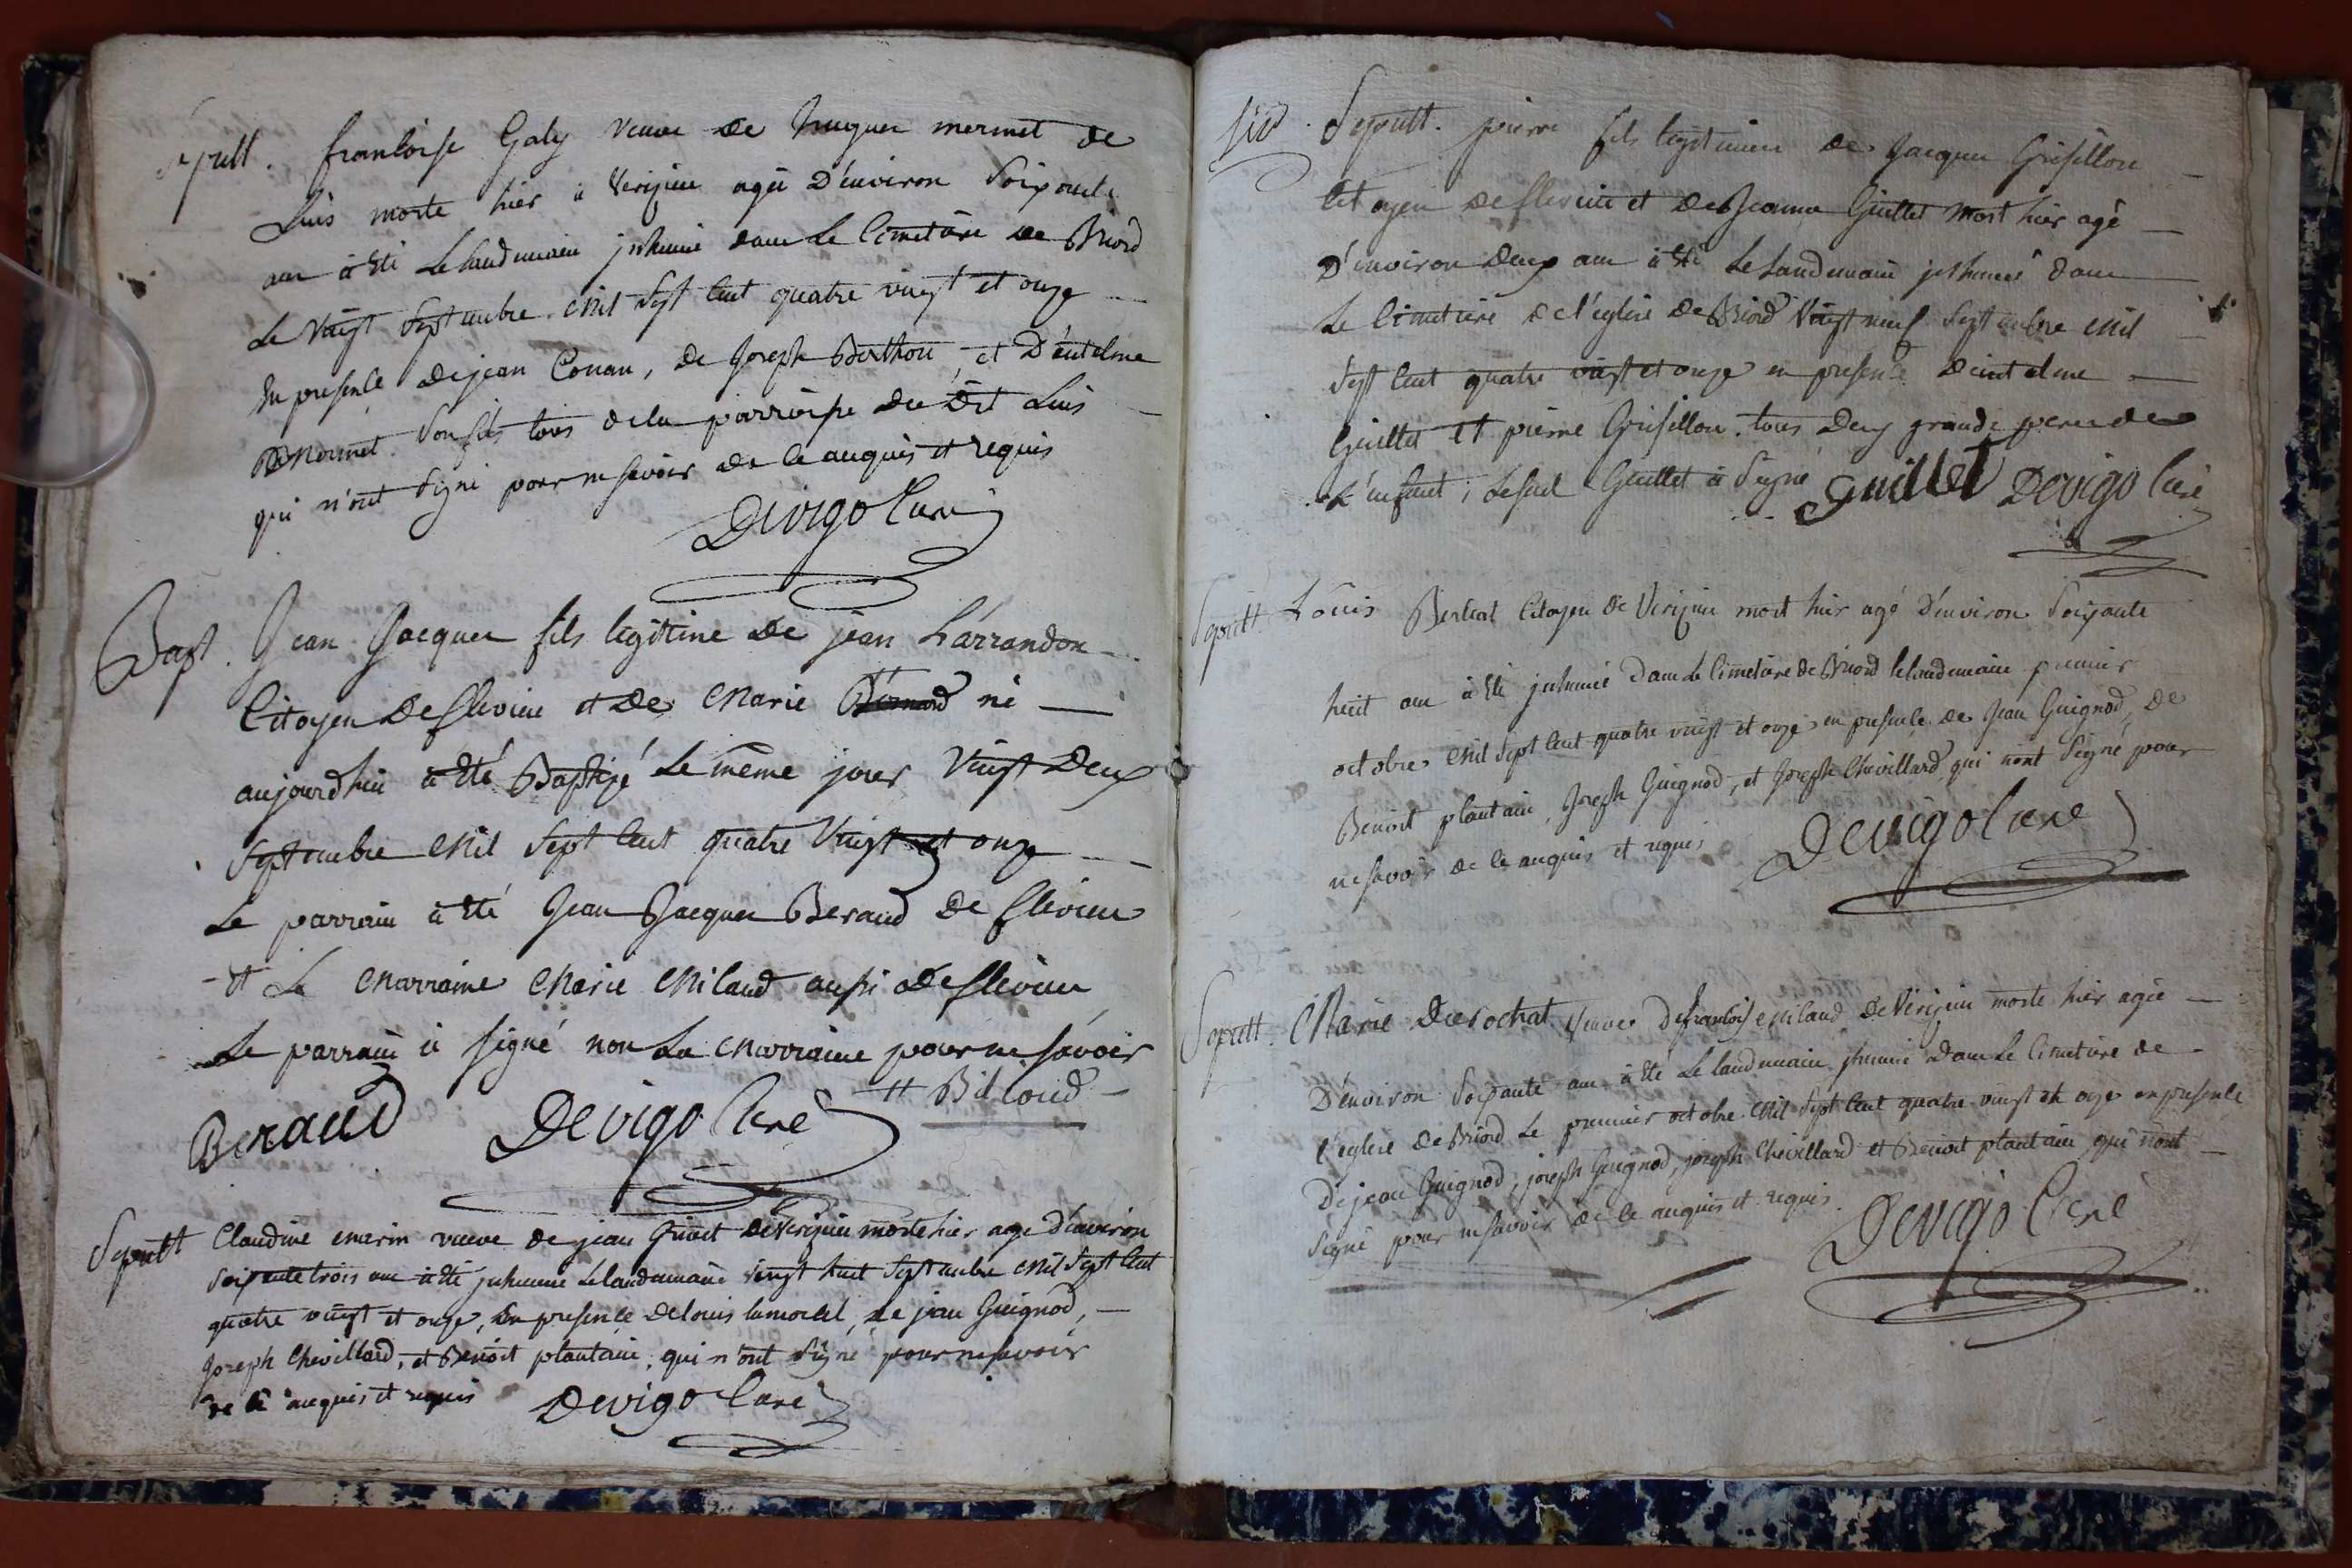 Sepult. françoise Galy veuve de hugues mermet de
Luis morte hier à Verizieu agée D'environ Soixante
ans à été Le landemain jnhumé dans Le Cimetiere de Briord
Le Vingt Septembre mil Sept Cent quatre vingt et onze
En presence de jean Conan, de Joseph Berthon, et D'entelme
Mermet Son fils tous de la parroisse du Dit Luis
qui n'ont Signé pour ne Savoir de ce anquis et requis
Devigo Curé
Bapt. Jean Jacques fils legitime de jean Larrandon
Citoyen de flevieu et de Marie né
aujourdhui à été Baptizé Le même jour Vingt Deux
Septembre mil Sept Cent quatre Vingt et onze
Le parrain à été Jean Jacques Beraud de flevieu
et La Marraine Marie Milaud aussi de flevieu
Le parrain à signé non La Marraine pour ne savoir
# Billioud
Beraud Devigo Curé
Sepult Claudine marin veuve de jean de Verizieu morte hier age D'environ
Soixante trois ans à été jnhumé Le landemain vingt huit Septembre mil Sept Cent
quatre vingt et onze, En presence de Louis lamorlel, de jean Guignod,
Joseph Chevillard, et Benoit plantain, qui n'ont Signé pour ne savoir
de ce anquis et requis Devigo Curé
Sepult. pierre fils legitime de Jacques Grisillon
Citoyen de flevieu et de Jeanne Guillet mort hier agé
D'environ Deux ans à été Le Landemain jnhumé dans
Le Cimetiere de l'eglise de Briord Vingt neuf Septembre mil
Sept Cent quatre vingt et onze en presence d'entelme
Guillet et pierre Grisillon tous Deux grands peres de
L'enfant, Le seul Guillet à Signé Guillet Devigo Curé
Sepult. Louis Berliat Citoyen de Verizieu mort hier agé D'environ Soixante
huit ans à été jnhumé dans Le Cimetiere de Briord le landemain premier
octobre mil Sept Cent quatre vingt et onze en presence de Jean Guignod, de
Benoit plantain, Joseph Guignod, et Joseph Chevillard qui nont Signé pour
ne savoir de ce anquis et requis Devigo Curé
Sepult. Marie Durochat Veuve de françois milaud de Verizieu morte hier agée
D'environ Soixante ans à été Le landemain jnhumé dans Le Cimetiere de
l'eglise de Briord Le premier octobre mil Sept Cent quatre vingt et onze en presence
De jean Guignod, joseph Guignod, joseph Chevillard et Benoit plantain qui nont
Signé pour ne savoir de ce anquis et requis. Devigo Curé